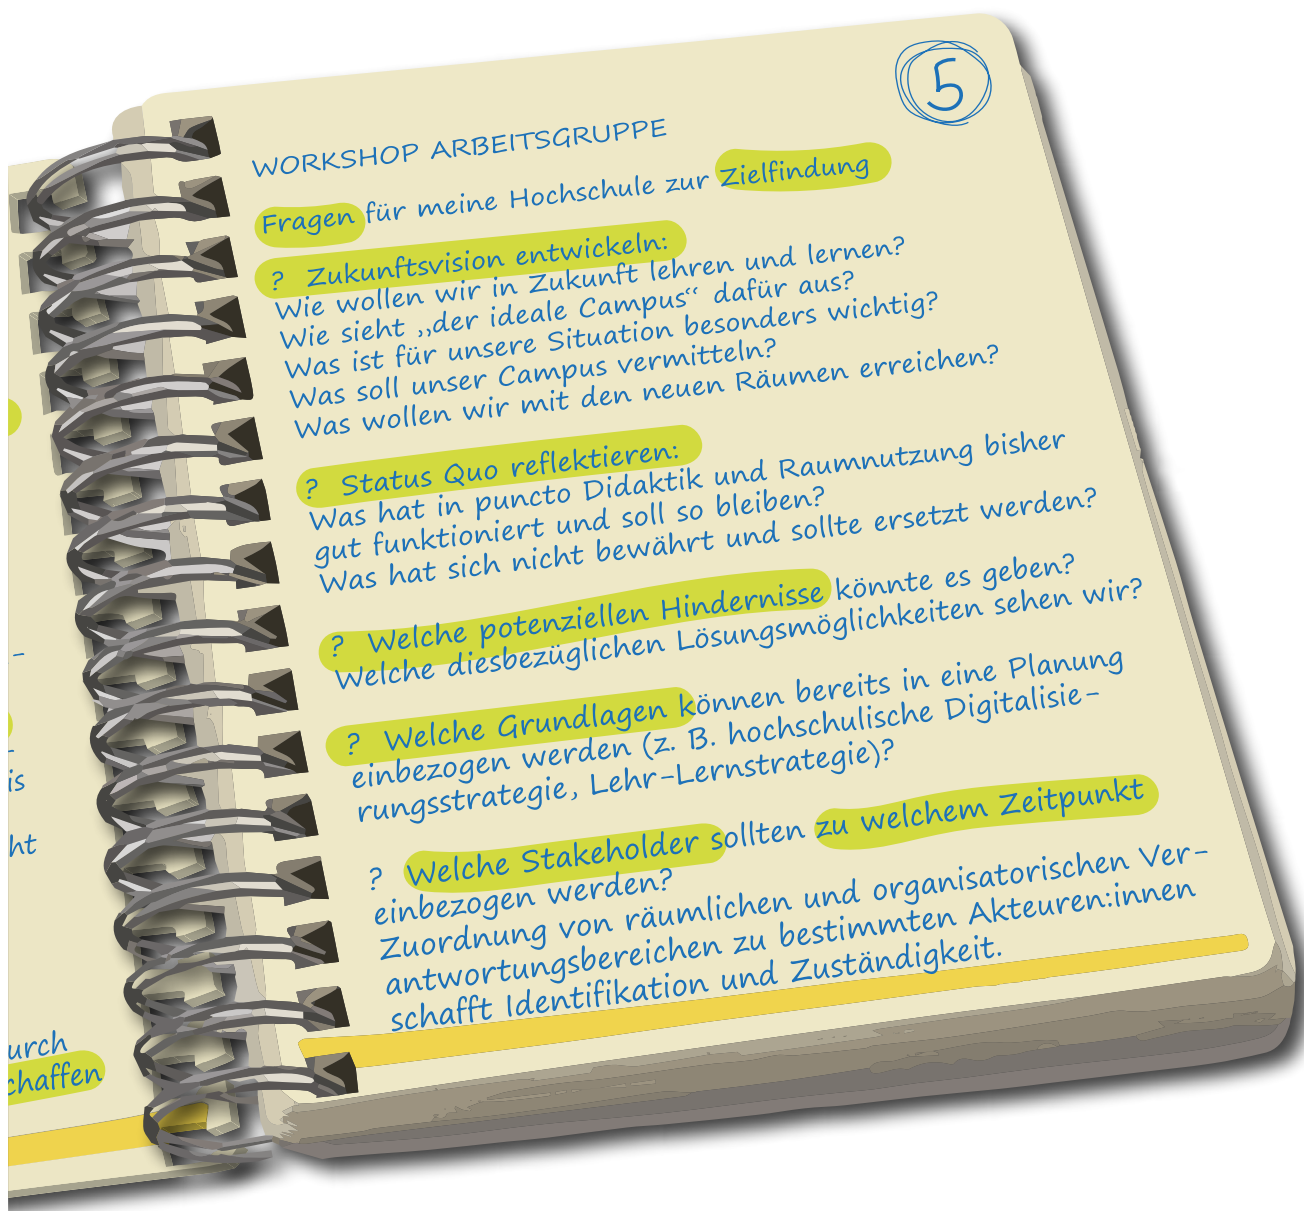 5
WORKSHOP ARBEITSGRUPPE
Fragen für meine Hochschule zur Zielfindung
? Zukunftsvision entwickeln:
Wie wollen wir in Zukunft lehren und lernen?
Wie sieht „der ideale Campus“ dafür aus?
Was ist für unsere Situation besonders wichtig?
Was soll unser Campus vermitteln?
Was wollen wir mit den neuen Räumen erreichen?
? Status Quo reflektieren:
Was hat in puncto Didaktik und Raumnutzung bisher
gut funktioniert und soll so bleiben?
Was hat sich nicht bewährt und sollte ersetzt werden?
? Welche potenziellen Hindernisse könnte es geben?
Welche diesbezüglichen Lösungsmöglichkeiten sehen wir?
? Welche Grundlagen können bereits in eine Planung
einbezogen werden (z. B. hochschulische Digitalisie-
rungsstrategie, Lehr-Lernstrategie)?
? Welche Stakeholder sollten zu welchem Zeitpunkt
einbezogen werden?
Zuordnung von räumlichen und organisatorischen Ver-
antwortungsbereichen zu bestimmten Akteuren:innen
schafft Identifikation und Zuständigkeit.